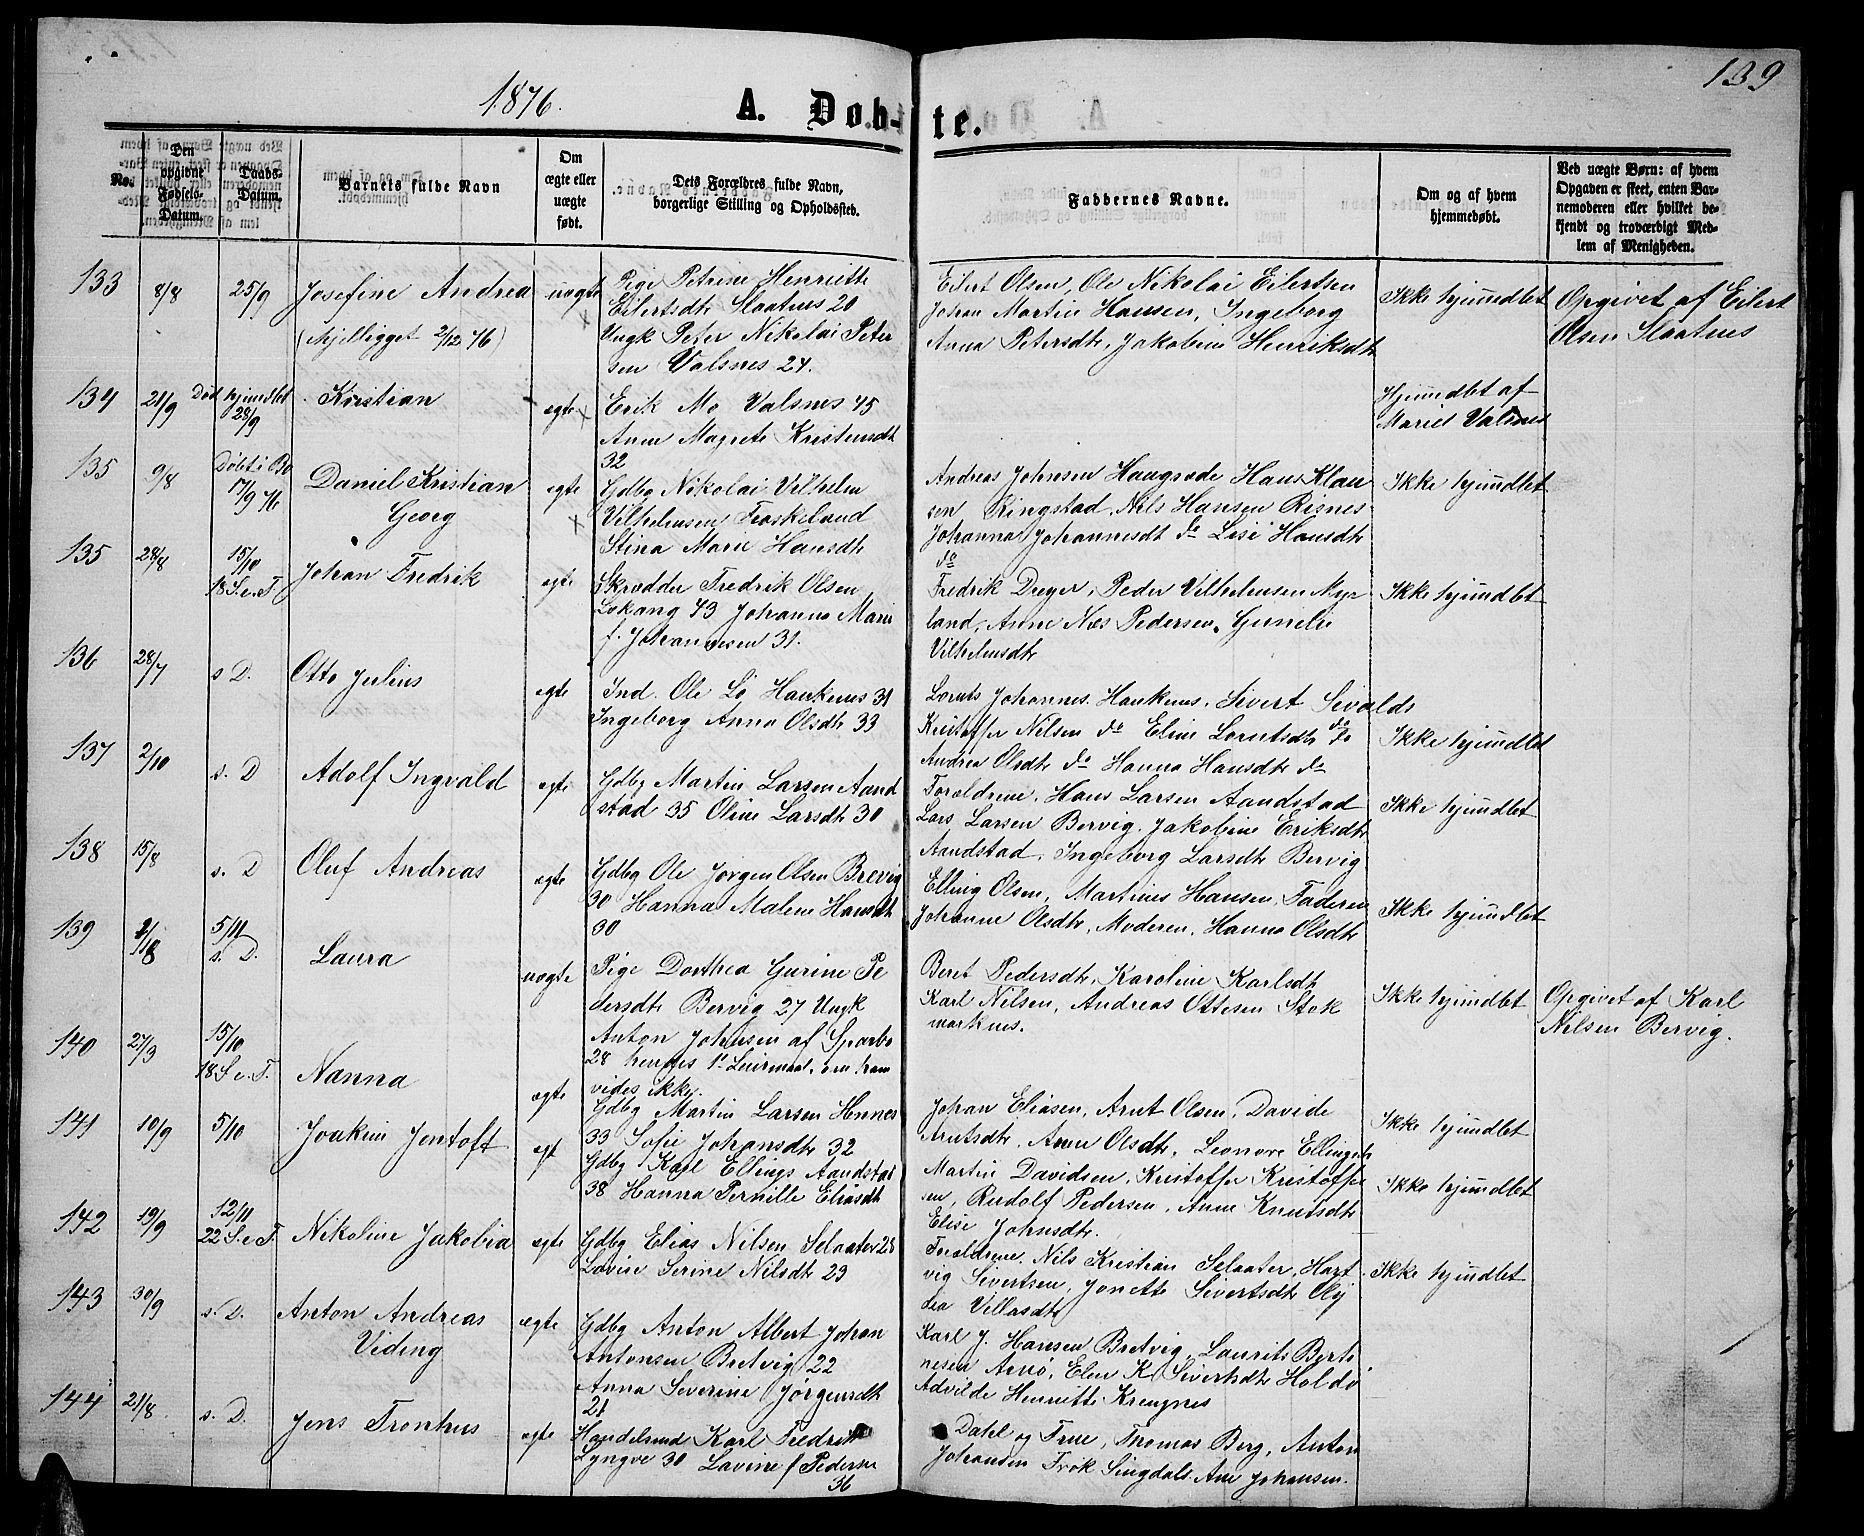 1876.
A. Døb-te.
139
No.
Den opgivne Fødsels-Datum.
Daabs-Datum.
Barnets fulde Navn
Om ægte eller uægte født.
Dets Forældres fulde Navn, borgerlige Stilling og Opholdssted.
Faddernes Navne.
Om og af hvem hjemmedøbt.
Ved uægte Børn: af hvem Opgaven er skeet, enten Barnemoderen eller hvilket bekjendt og troværdigt Medlem af Menigheden.
133 8/8 25/9 Josefine Andrea uægte
(Mjelligget 2/12 76)
Pige Petrine Henriette
Eilertsdtr Slaatnes 20
Ungk Peter Nikolai Peter
sen Valsnes 24.
Eilert Olsen, Ole Nikolai Eilertsen
Johan Martin Hansen, Ingeborg
Anna Petersdtr, Jakobine Henriksdtr
Ikke hjemmdbt
Opgivet af Eilert
Olsen Slaatnes
134 21/9 Død hjemmdbt
28/9
Kristian ægte
Erik Mo Valsnes 45
Anne Magrete Kristensdtr
32
Hjemmdbt af
Mariel Valsnes
135 9/8 Døbt i Bo
17/9 76
Daniel Kristian
Georg
ægte
Gdbg Nikolai Vilhelm
Vilhelmsen Fiskeland
Stina Marie Hansdtr
Andreas Johnsen Haugsode Hans Klau
sen Ringstad, Nils Hansen Risnes
Johanna Johannesdt do Lise Hansdtr
do
Ikke hjemmdbt
135 28/8 15/10
18 S. e. T.
Johan Fredrik ægte
Skrædder Fredrik Olsen
Lokang 43 Johanna Marie
f. Johannesen 31.
Fredrik Dreyer, Peder Vilhelmsen Myr
land, Anne Næs Pedersen, Gunelie
Vilhelmsdtr
Ikke hjemmdbt
136 28/7 s D. Otto Julius ægte
Ind. Ole Lo Haukenes 31
Ingeborg Anna Olsdtr 33
Loruts Johannes. Haukenes, Sivert Sivalds
Kristoffer Nilsen do Eline Lorntsdtr do
Andrea Olsdtr do Hanna Hansdtr do
Ikke hjemmdbt
137 2/10 s. D Adolf Ingvald ægte
Gdbg Martin Larsen Aand
stad 35 Oline Larsdtr 30
Forældrene, Hans Larsen Aandstad
Lars Larsen Bervig. Jakobine Eriksdtr
Aandstad, Ingeborg Larsdtr Bervig
Ikke hjemmdbt
138 15/8 s. D Oluf Andreas ægte
Gdbg Ole Jørgen Olsen Brevig
30 Hanna Malene Hansdtr
30
Elling Olsen, Martines Hansen, Faderen
Johanne Olsdtr, Moderen, Hanna Olsdtr
Ikke hjemmdbt
139 5/11
s. D.
Laura uægte
Pige Dorthea Gurine Pe
dersdtr Bervig 27 Ungk
Anton Johnsen af Sparbo
28 hennes 1ste Leiermaal, om ham
vides ikke.
Beret Pedersdtr, Karoline Karlsdtr
Karl Nilsen, Andreas Ottesen Stok
marknes.
Ikke hjemmdbt
Opgivet af Karl
Nilsen Bervig.
140 27/3 15/10
18 S. e. T.
Nanna ægte
Gdbg Martin Larsen Hennes
33 Sofie Johansdtr 32
Johan Eliasen, Arnt Olsen, Davide
Arntsdtr, Anne Olsdtr, Leonore Ellingsdtr
Ikke hjemmdbt
141 10/9 5/10 Joakim Jentoft egt
Gdbg Karl Ellings Aandstad
38 Hanna Pernille Eliasdtr
Martin Davidsen, Kristoffer Kristoffer
sen, Rudolf Pedersen, Anne Knutsdtr
Elise Johnsdtr.
Ikke hjemmdbt
142 19/9 12/11
22 S. e. T.
Nikoline Jakobia ægte
Gdbg Elias Nilsen Selaater 28
Lovise Serine Nilsdtr 29
Forældrene, Nils Kristian Selaater, Hart
vig Sivertsen, Jonette Sivertsdtr Oly
dia Villasdtr
Ikke hjemmdbt
143 30/9 s. D. Anton Andreas
Viding
ægte
Gdbg Anton Albert Johan
Antonsen Bretvig 22
Anna Severine Jørgensdtr
21
Karl J. Hansen Bretvig, Laurits Bert
nesen Arnø, Elen K Sivertsdtr Holdø
Advilde Henriette Krengnes
144 21/8 s. D. Jens Tronhus ægte
Handelsmd Karl Fredrik
Lyngve 30 Lavine f Pederse
36
Dahl og Frue, Thomas Berg, Anton
Johansen Frøk Singdals. Ane Johansen.